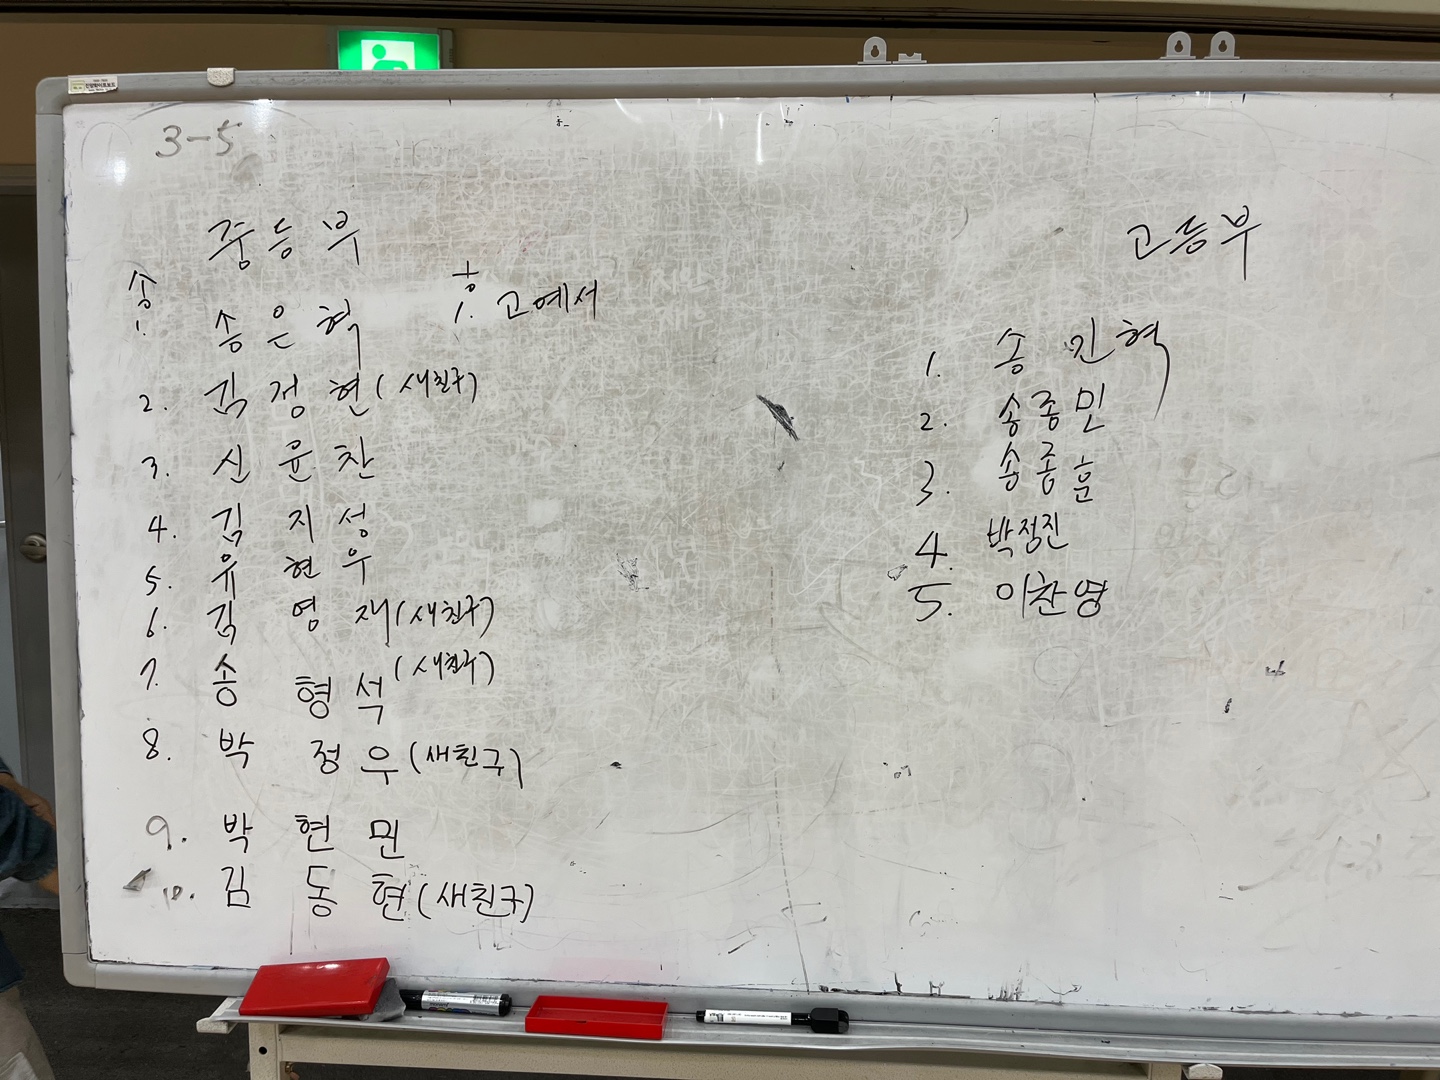 3-5
중등부
송
1. 송은혁
1. 고예서
2. 김정현(새친구)
3. 신윤찬
4. 김지성
5. 유현우
6. 김영재(새친구)
7. 송형석(새친구)
8. 박정우(새친구)
9. 박현민
10. 김동현(새친구)
고등부
1. 송민혁
2. 송종민
3. 송종훈
4. 박정진
5. 이찬영